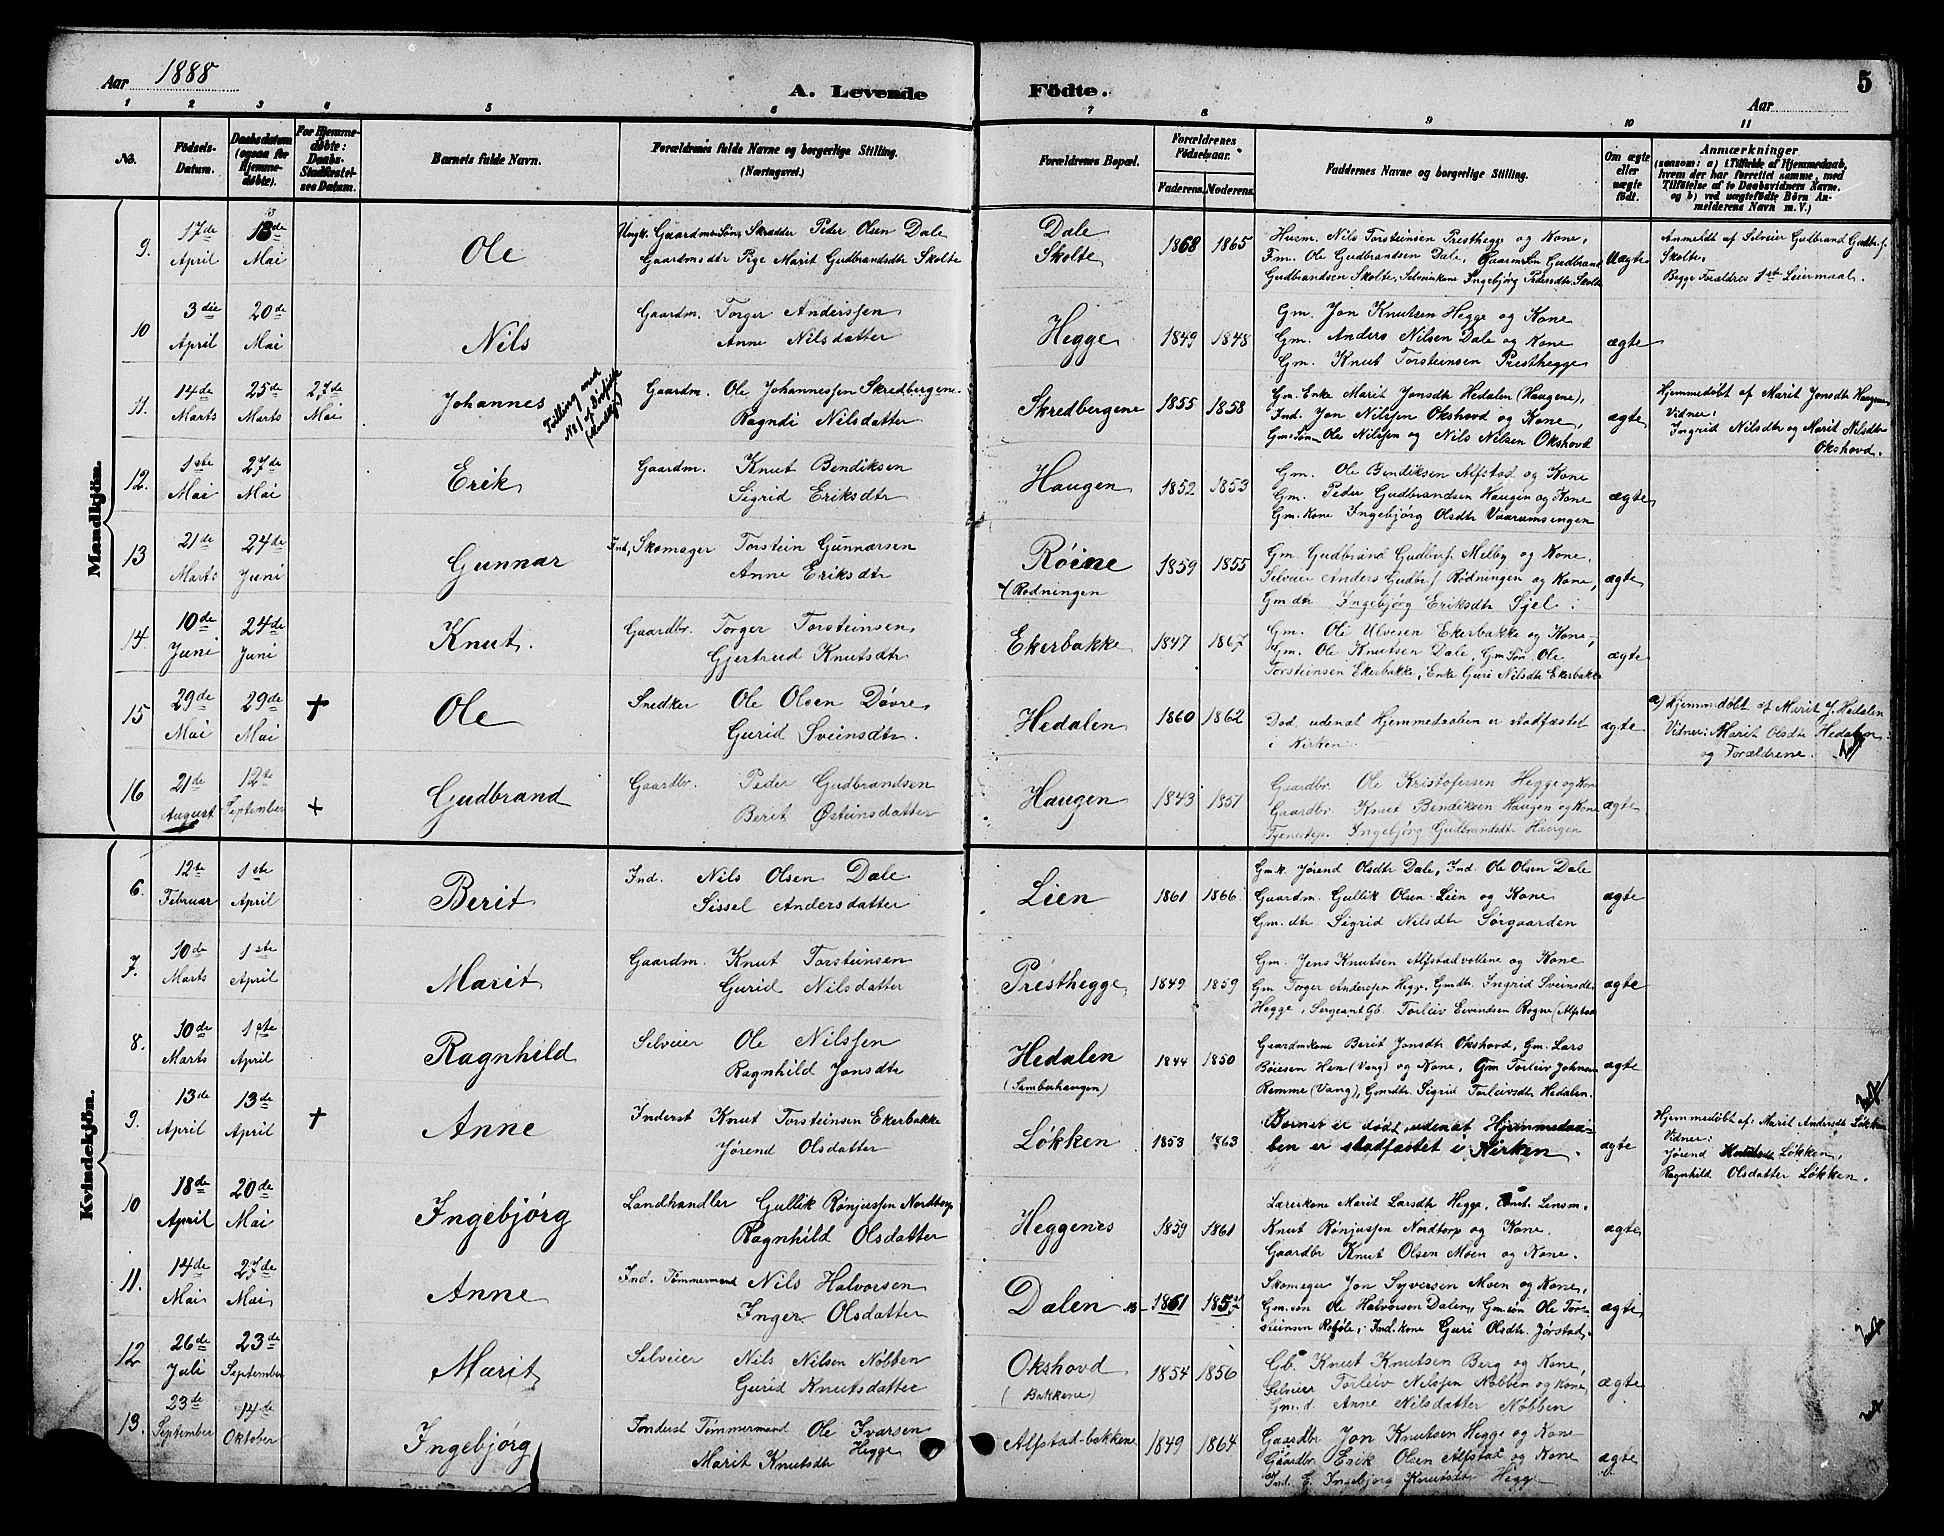 Aar 1888
A. Levende Fødte.
Aar
5
1 2 3 4 5 6 7 8 9 10 11
No.
Fødsels-Datum.
Daabsdatum (ogsaa for Hjemmedøbte).
For Hjemmedøbte: Daabs-Stadfæstelses Datum.
Barnets fulde Navn.
Forældrenes fulde Navne og borgerlige Stilling. (Næringsvei.)
Forældrenes Bopæl.
Forældrenes Fødselsaar.
Faderens. Moderens.
Faddernes Navne og borgerlige Stilling.
Om ægte eller uægte født.
Anmærkninger
(saasom: a) i Tilfælde af Hjemmedaab, hvem der har forrettet samme, med Tilføielse af to Daabsvidners Navne. og b) ved uægtefødte Børn Anmelderens Navn m. V.)
Mandkjön.
9. 17de April 13de Mai
Ole
Ungk. Gaardm. Søn, Skrædder Peder Olsen Dale
Gaardmsdtr Pige Marit Gudbrandsdtr Skolte
Dale
Skolte
1868 1865
Husm. Nils Torsteinsen Presthegge og Kone,
Gm. Ole Gudbrandsen Dale, Gaardm Søn Gudbrand
Gudbrandsen Skolte, Selveierkone Ingebjørg Pedersdtr Skolte
Uægte
Anmeldt af Selveier Gudbrand Gudbr.s.
Skolte.
Begge Forældres 1ste Leiermaal.
10 3die April 20de Mai
Nils
Gaardm. Torger Anderssen
Anne Nilsdatter
Hegge
1849 1848
Gm. Jon Knutsen Hegge og Kone
Gm. Anders Nilsen Dale og Kone
Gm. Knut Torsteinsen Presthegge
ægte
11. 14de Marts 25de Marts 27de Mai
Johannes
Tvilling med No 1 af Dødfødte (Mandkj.)
Gaardm. Ole Johannessen Skredbergene
Ragndi Nilsdatter
Skredbergene
1855 1858
Gm. Enke Marit Jonsdtr Hedalen (Haugene),
Ind. Jon Nilssen Okshovd og Kone,
Gm. Søn Ole Nilssen og Nils Nilsen Okshovd
ægte
Hjemmedøbt af Marit Jonsdtr Haugene
Vidner:
Ingrid Nilsdtr og Marit Nilsdtr
Okshovd.
12. 1ste Mai 27de Mai
Erik
Gaardm. Knut Bendiksen
Sigrid Eriksdtr
Haugen
1852 1853
Gm. Ole Bendiksen Alfstad og Kone
Gm. Peder Gudbrandsen Haugen og Kone
Gm. Kone Ingebjørg Olsdtr Vaarumsengen
ægte
13 21de Marts 24de Juni
Gunnar
Ind, Skomager Torstein Gunnarsen
Anne Eriksdtr
Røine
Rødningen
1859 1855
Gm. Gudbrand Gudbr.s. Melby og Kone,
Selveier Anders Gudbr.s. Rødningen og Kone,
Gm dtr Ingebjørg Eriksdtr Sjel
ægte
14. 10de Juni 24de Juni
Knut.
Gaardbr. Torger Torsteinsen
Gjertrud Knutsdtr
Ekerbakke
1847 1867
Gm. Ole Ulvesen Ekerbakke og Kone,
Gm. Ole Knutsen Dale, Gm Søn Ole
Torsteinsen Ekerbakke, Enke Guri Nilsdtr Ekerbakke
ægte
15 29de Mai 29de Mai †
Ole
Snedker Ole Olsen Døvre
Gurid Sveinsdtr.
Hedalen
1860 1862
Død udenat Hjemmedaaben er stadfæstet
i Kirken
ægte
a) Hjemmedøbt af Marit J. Hedalen
Vidner: Marit Olsdtr Hedalen
og Forældrene.
16 21de August 12te September +
Gudbrand
Gaardbr. Peder Gudbrandsen
Berit Østensdatter
Haugen
1843 1851
Gaardbr Ole Kristofersen Hegge og Kone
Gaardbr Knut Bendiksen Haugen og Kone
Tjenestep. Ingebjørg Gudbrandsdtr Haugen
ægte
Kvindekjön.
6. 12te Februar 1ste April
Berit
Ind. Nils Olsen Dale
Sissel Andersdatter
Lien
1861 1866
Gmk. Jørend Olsdtr Dale, Ind Ole Olsen Dale
Gaardm. Gullik Olsen Lien og Kone
Gm. dtr Sigrid Nilsdtr Sørgaarden
ægte
7. 10de Marts 1ste April
Marit
Gaardm. Knut Torsteinsen
Gurid Nilsdatter
Presthegge
1849 1859
Gm. Jens Knutsen Alfstadvollene og Kone
Gm Torger Anderssen Hegge, Gmdtr. Ingrid Sveinsdtr
Hegge, Sergeant Gb. Torleiv Eivindsen Rogne (Alfstad
ægte
8. 10de Marts 1ste April
Ragnhild
Selveier Ole Nilssen
Ragnhild Jonsdtr
Hedalen
(Samberhaugen)
1844 1850
Gaardmkone Berit Jonsdtr Okshovd, Gm. Lars
Böiesen Hen (Vang) og Kone, Gm Torleiv Johnsen
Remme (Vang), Gmdtr. Sigrid Torleivsdtr Hedalen.
ægte
9. 13de April 13de April †
Anne
Inderst Knut Torsteinsen Ekerbakke
Jørend Olsdatter
Løkken
1853 1863
Barnet er dødt, udenat Hjemmedaa-
ben er stadfæstet i Kirken.
ægte
Hjemmedøbt af: Marit Andersdtr Løkken
Vidner:
Jørend Løkken,
Ragnhild Olsdatter Løkken.
10 18de April 20de Mai
Ingebjørg
Landhandler Gullik Rønjussen Nordtorp
Ragnhild Olsdatter
Heggenes
1859 1861
Lærerkone Marit Larsdtr Hegge, Lensm.
Knut Rønjussen Nordtorp og Kone.
Gaardbr Knut Olsen Moen og Kone.
ægte
11. 14de Mai 27de Mai
Anne
Ind. Tømmermand Nils Halvorsen
Inger Olsdatter
Dalen
1861 1857
Skomager Jon Syversen Moen og Kone,
Gm. søn Ole Halvorsen Dalen, Gm. søn Ole Tor-
steinsen Rofole, Ind. kone Guri Olsdtr. Jørstad.
ægte
12 26de Juli 23de September
Marit
Selveier Nils Nilsen Nöbben
Gurid Knutsdatter
Okshovd
(Bakkene)
1854 1856
Gb. Knut Knutsen Berg og Kone,
Selveier Torleiv Nilssen Nöbben og Kone,
Gm. d. Anne Nilsdatter Nöbben
ægte
13. 23de September 14de Oktober
Ingebjørg
Inderst Tømmermand Ole Ivarsen
Hegge
Marit Knutsdtr
Alfstad-bakkene
1849 1864
Gaardbr Jon Knutsen Hegge og Kone
Gaardbr. Erik Olsen Alfstad og Kone
Ind. E. Ingebjørg Knutsdtr Hegge
ægte